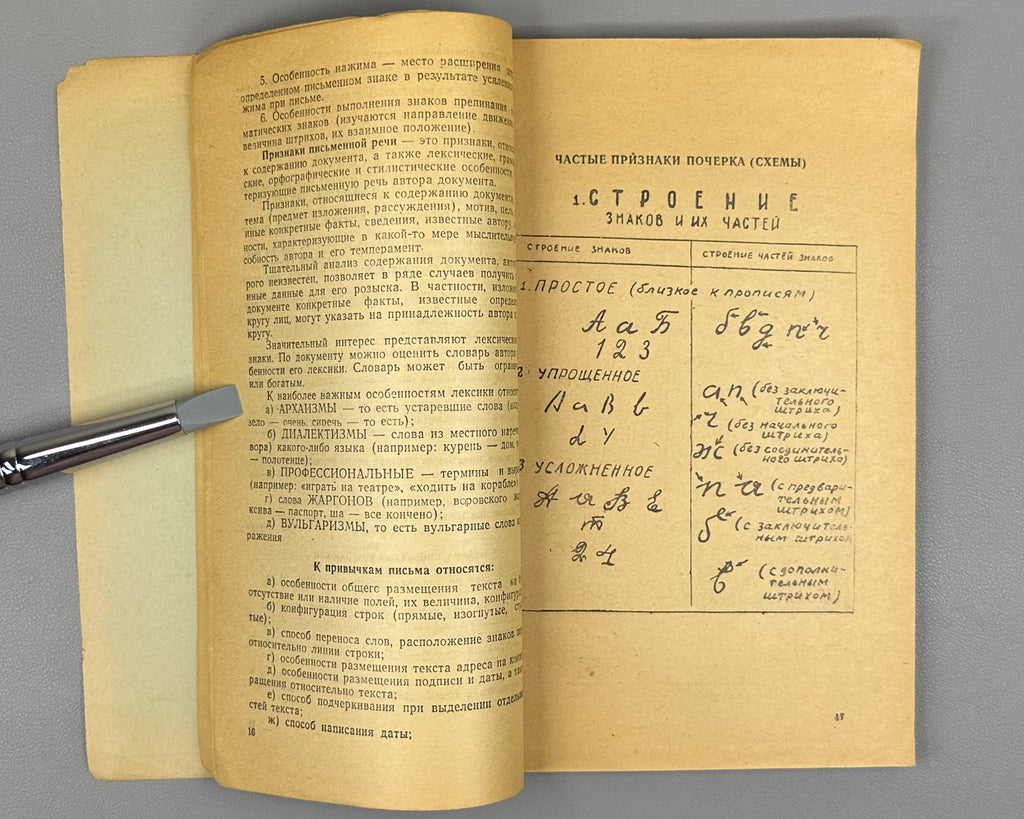 5. Особенность нажима — место расширения
определенном письменном знаке в результате усилен
жима при письме.
6. Особенности выполнения знаков препинания
матических знаков (изучаются направление движен
величина штрихов, их взаимное положение).
Признаки письменной речи — это признаки, относ
к содержанию документа, а также лексические, грам
ские, орфографические и стилистические особенности,
теризующие письменную речь автора документа.
Признаки, относящиеся к содержанию документа,
тема (предмет изложения, рассуждения), мотив, цель,
иные конкретные факты, сведения, известные автору,
ности, характеризующие в какой-то мере мыслитель
собность автора и его темперамент.
Тщательный анализ содержания документа, авт
рого неизвестен, позволяет в ряде случаев получить
иные данные для его розыска. В частности, излож
документе конкретные факты, известные опреде
кругу лиц, могут указать на принадлежность автора
кругу.
Значительный интерес представляют лексические
знаки. По документу можно оценить словарь автора
бенности его лексики. Словарь может быть огран
или богатым.
К наиболее важным особенностям лексики относ
а) АРХАИЗМЫ — то есть устаревшие слова (нап
зело — очень, сиречь — то есть);
б) ДИАЛЕКТИЗМЫ — слова из местного нареч
вора) какого-либо языка (например: курень — дом,
— полотенце);
в) ПРОФЕССИОНАЛЬНЫЕ — термины и выр
(например: «играть на театре», «ходить на корабле»
г) слова ЖАРГОНОВ (например, воровского жа
ксива — паспорт, ша — все кончено);
д) ВУЛЬГАРИЗМЫ, то есть вульгарные слова и
ражения
К привычкам письма относятся:
а) особенности общего размещения текста на
отсутствие или наличие полей, их величина, конфигура
б) конфигурация строк (прямые, изогнутые, ст
тые);
в) способ переноса слов, расположение знаков
относительно линии строки;
г) особенности размещения текста адреса на кон
д) особенности размещения подписи и даты, а так
ращения относительно текста;
е) способ подчеркивания при выделении отдель
стей текста;
ж) способ написания даты;
16
ЧАСТЫЕ ПРИЗНАКИ ПОЧЕРКА (СХЕМЫ)
1. СТРОЕНИЕ
ЗНАКОВ И ИХ ЧАСТЕЙ
СТРОЕНИЕ ЗНАКОВ
СТРОЕНИЕ ЧАСТЕЙ ЗНАКОВ
1. ПРОСТОЕ (близкое к прописям)
А а Б
1 2 3
б в д п ч
2 УПРОЩЕННОЕ
А а В в
д Ч
а п (без заключи-
тельного
штриха)
ч (без начального
штриха)
ж (без соединитель-
ного штриха)
3 УСЛОЖНЕННОЕ
А я В Е
т
2 4
п а (с предвари-
тельным
штрихом)
б (с заключитель-
ным штрихом
в (с дополни-
тельным
штрихом)
17